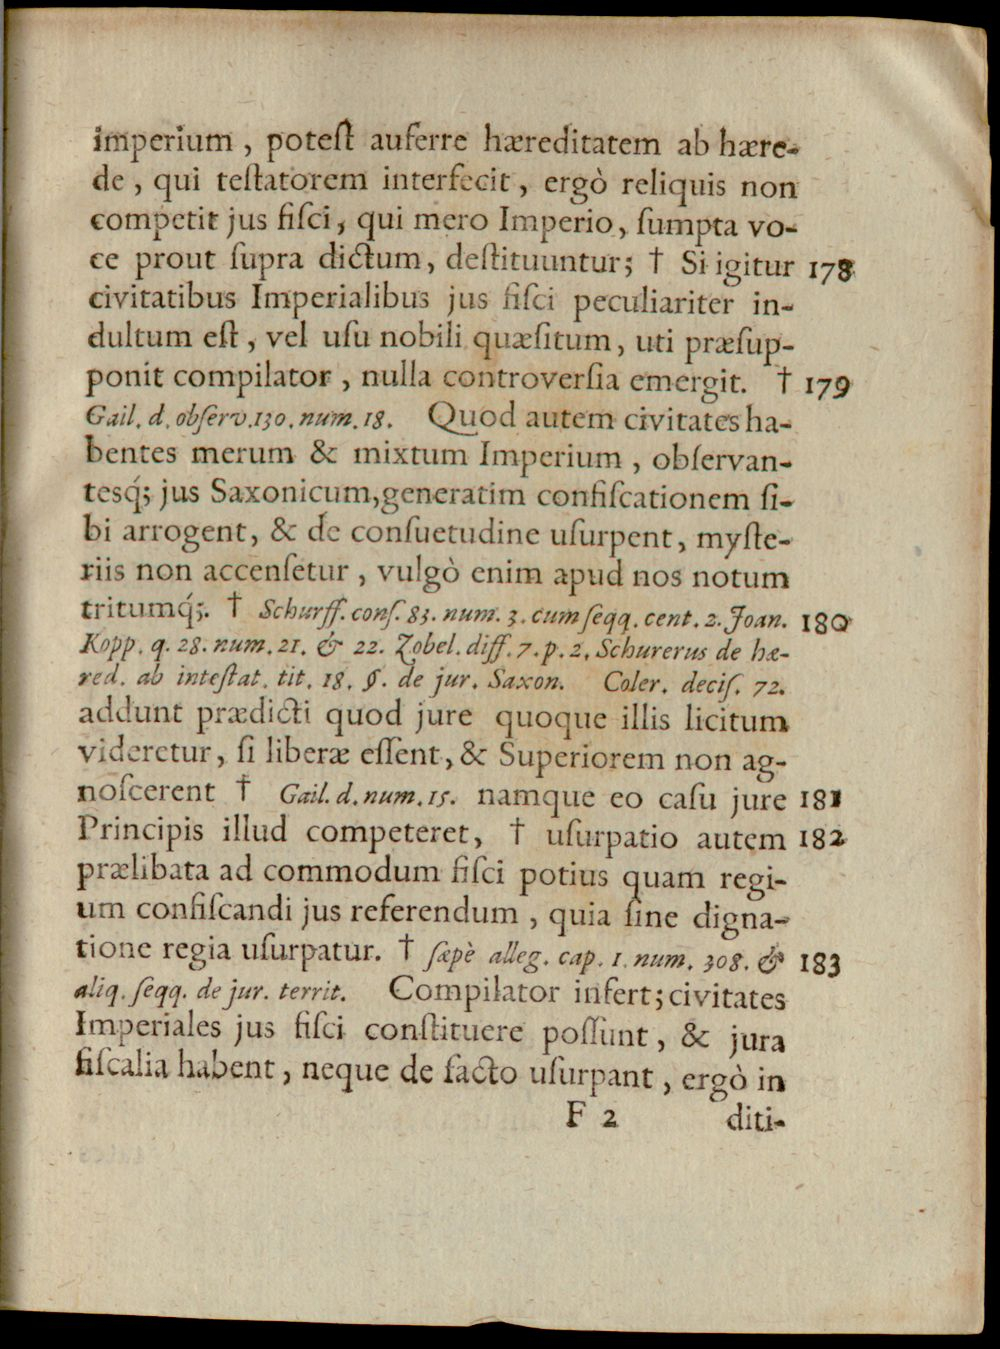 imperium, potest auferre hæreditatem ab hære-
de, qui testatorem interfecit, ergò reliquis non
competit jus fisci, qui mero Imperio, sumpta vo-
ce prout supra dictum, destituuntur; † Si igitur 178
civitatibus Imperialibus jus fisci peculiariter in-
dultum est, vel usu nobili quæsitum, uti præsup-
ponit compilator, nulla controversia emergit. † 179
Gail. d. observ. 130. num. 18. Quod autem civitates ha-
bentes merum & mixtum Imperium, observan-
tesq́; jus Saxonicum, generatim confiscationem si-
bi arrogent, & de consuetudine usurpent, myste-
riis non accensetur, vulgò enim apud nos notum
tritumq́;. † Schurff. cons. 83. num. 3. cum seqq. cent. 2. Joan. 180
Kopp. q. 28. num. 21. & 22. Zobel. diff. 7. p. 2. Schurerus de hæ-
red. ab intestat. tit. 18. §. de jur. Saxon. Coler. decis. 72.
addunt prædicti quod jure quoque illis licitum
videretur, si liberæ essent, & Superiorem non ag-
noscerent † Gail. d. num. 15. namque eo casu jure 181
Principis illud competeret, † usurpatio autem 182
prælibata ad commodum fisci potius quam regi-
um confiscandi jus referendum, quia sine digna-
tione regia usurpatur. † sæpè alleg. cap. 1. num. 308. & 183
aliq. seqq. de jur. territ. Compilator infert; civitates
Imperiales jus fisci constituere possunt, & jura
fiscalia habent, neque de facto usurpant, ergò in
F 2 diti-